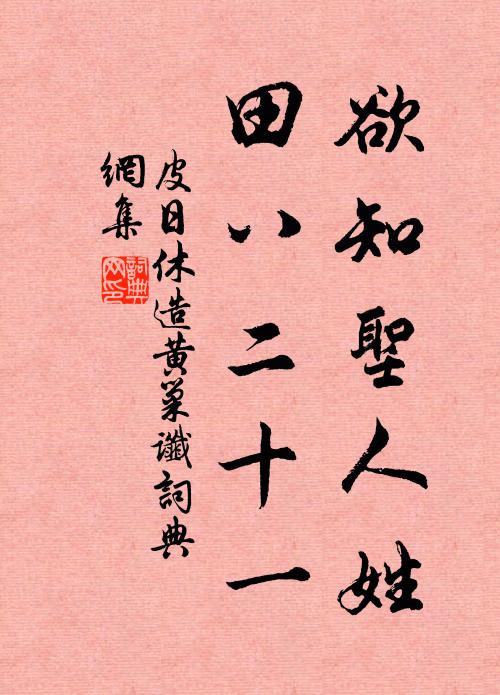 欲知聖人姓
田八二十一
皮日休造黄巢讖詞典
網集
詞典網印